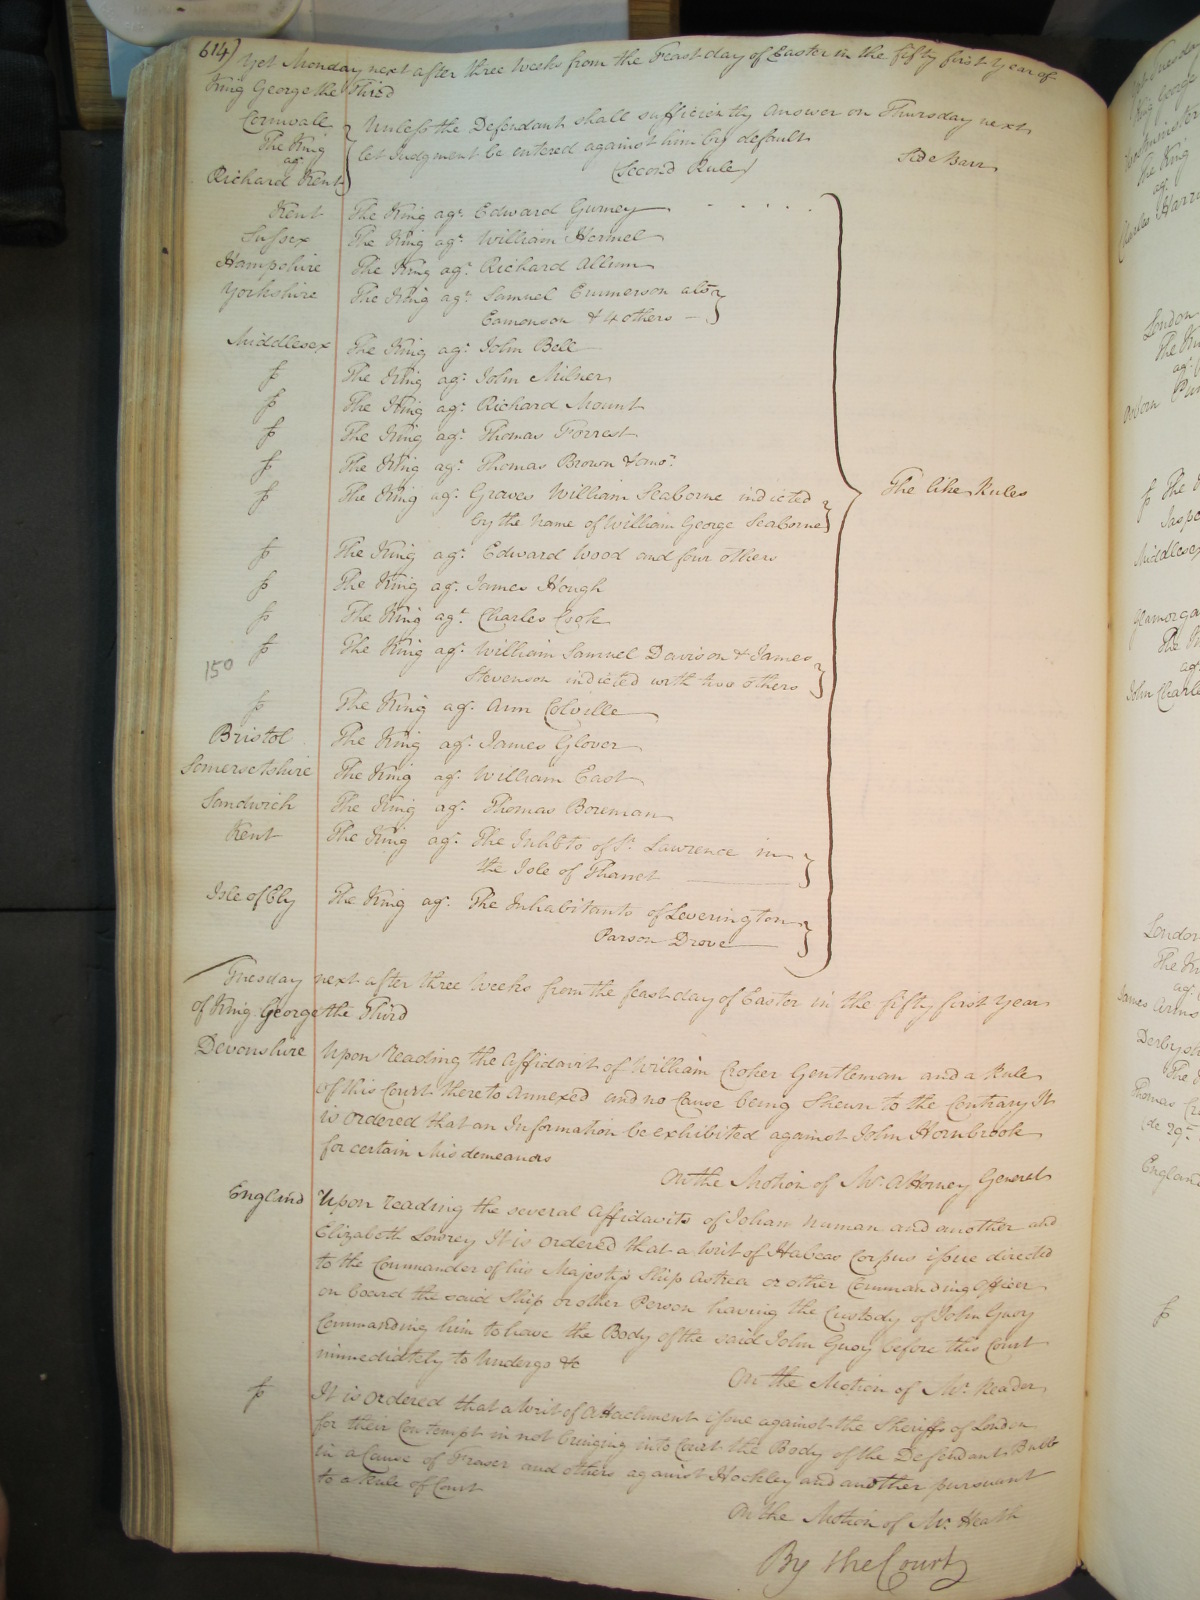 614) Yet Monday next after three Weeks from the Feast day of Easter in the fifty first Year of
King George the Third
Cornwall
The King
agt
Richard Kent
Unless the Defendant shall sufficiently Answer on Thursday next
let Judgment be entered against him by default
(Second Rule)
Side Barr
Kent The King agt. Edward Gurney
Sussex The King agt. William Hemmel
Hampshire The King agt. Richard Allum
Yorkshire The King agt. Samuel Emmerson als
Eamonson & 4 others
Middlesex The King agt. John Bell
fs The King agt. John Milner
fs The King agt. Richard Mount
fs The King agt. Thomas Forrest
fs The King agt. Thomas Brown & anor.
fs The King agt. Graves William Seaborne indicted
by the Name of William George Seaborne
The like Rules
fs The King agt. Edward Wood and four others
fs The King agt. James Hough
fs The King agt. Charles Cook
fs The King agt. William Samuel Davison & James
Stevenson indicted with two others
150
fs The King agt. Ann Colville
Bristol The King agt. James Glover
Somersetshire The King agt. William East
Sandwich The King agt. Thomas Boreman
Kent The King agt. The Inhbts of St. Lawrence in
the Isle of Thanet
Isle of Ely The King agt. The Inhabitants of Leverington
Parson Drove
Tuesday next after three Weeks from the feast day of Easter in the fifty first Year
of King George the Third
Devonshire Upon reading the Affidavit of William Croker Gentleman and a Rule
of this Court thereto Annexed and no Cause being Shewn to the Contrary It
is ordered that an Information be exhibited against John Hornbrook
for certain Misdemeanors
On the Motion of Mr. Attorney General
England Upon reading the several Affidavits of Johan Numan and another and
Elizabeth Lowrey It is ordered that a Writ of Habeas Corpus issue directed
to the Commander of his Majestys Ship Astrea or other Commanding Officer
on board the said Ship or other Person having the Custody of John Guoy
Commanding him to have the Body of the said John Guoy before this Court
immediately to Undergo &c
On the Motion of Mr. Reader
fs It is ordered that a Writ of Attachment issue against the Sheriffs of London
for their Contempt in not bringing into Court the Body of the Defendant Bulb
in a Cause of Fraser and others against Hockley and another pursuant
to a Rule of Court
On the Motion of Mr. Heath
By the Court